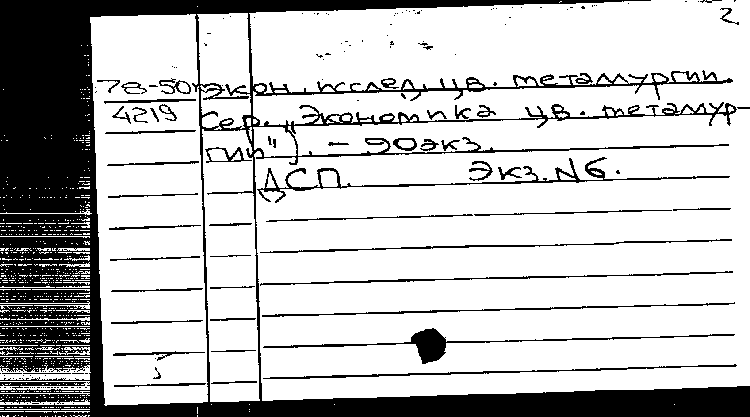 2
78-50г экон. исслед. цв. металлургии.
4219 Сер. "Экономика цв. металлур-
гии"). – 90 экз.
ДСП. Экз. N 6.